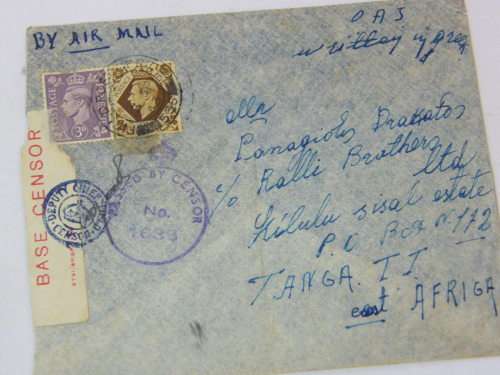 BY AIR MAIL
OAS
written in
POSTAGE
3D
BASE CENSOR
DEPUTY CHIEF
CENSOR
PASSED BY CENSOR
No.
Panagiotis Drakatos
c/o Ralli Brothers
ltd
Kilulu sisal estate
P.O Box N 112
TANGA T.T.
east AFRICA